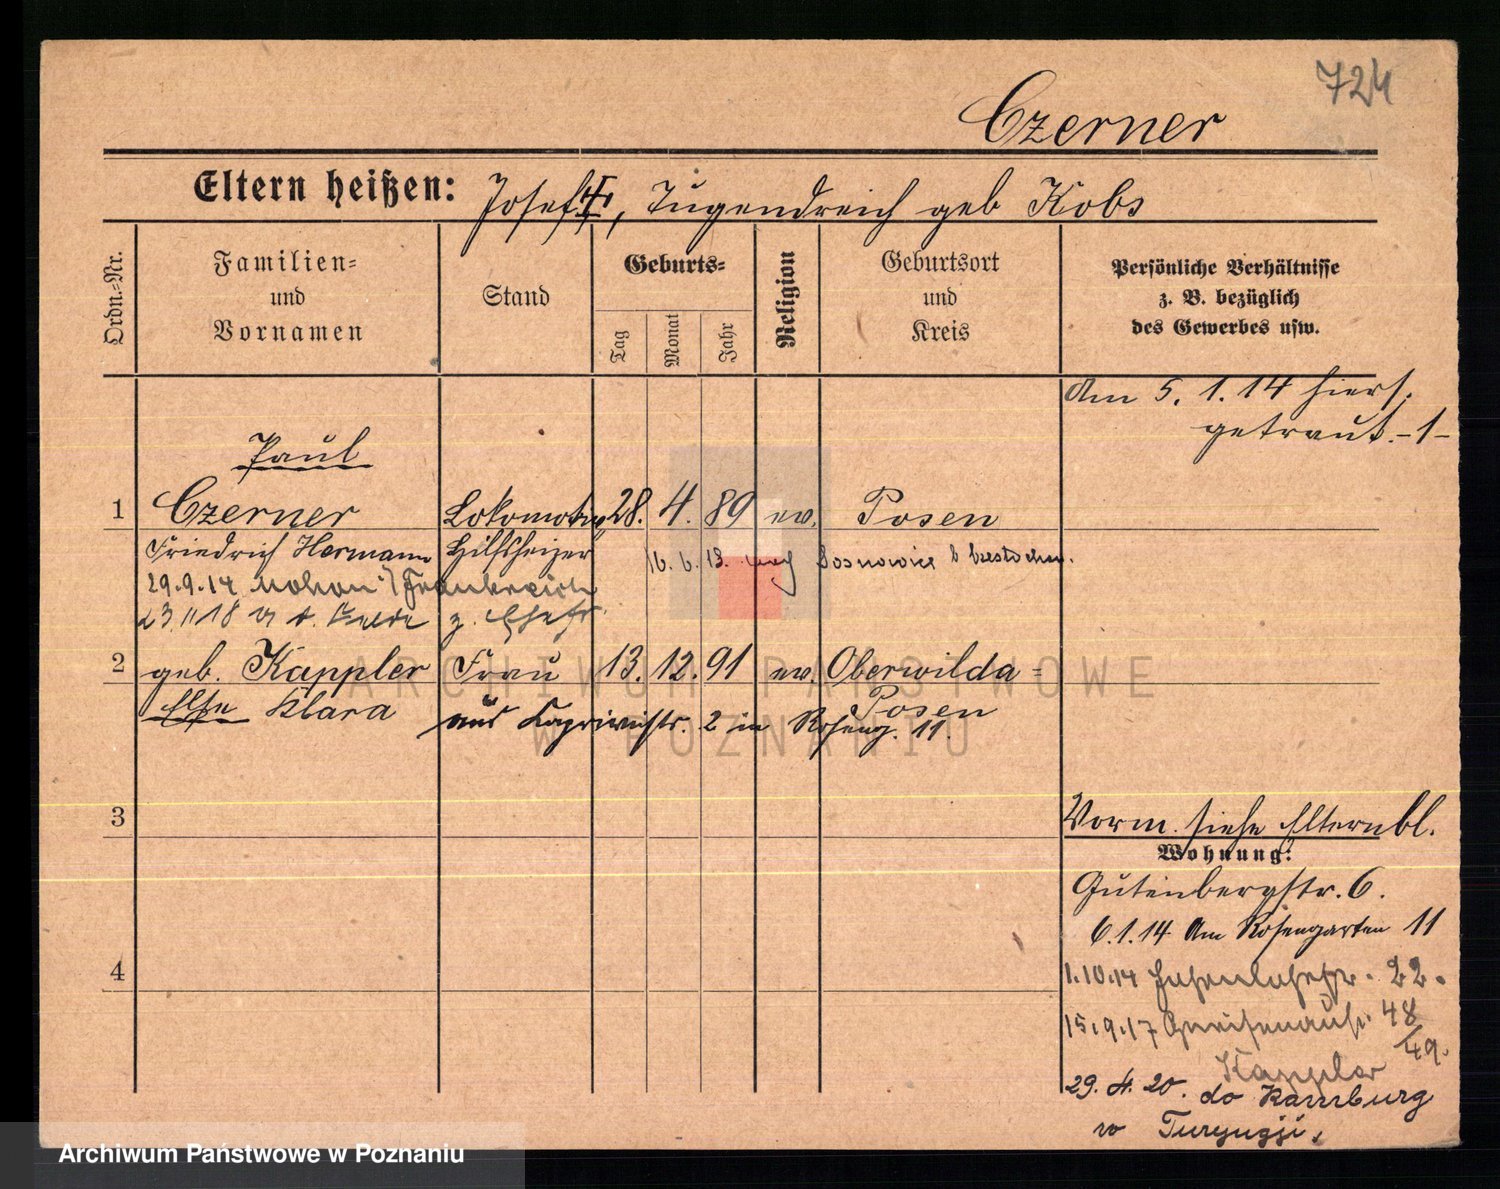 724
Czerner
Eltern heißen: Josef, Tugendreich geb Kobs
Ordn.=Nr.
Familien=
und
Vornamen
Stand
Geburts=
Tag
Monat
Jahr
Religion
Geburtsort
und
Kreis
Persönliche Verhältnisse
z. B. bezüglich
des Gewerbes usw.
Am 5. 1. 14 hiers.
getraut. -1-
Paul
1 Czerner Lokomotiv 28. 4. 89 ev. Posen
Friedrich Hermann Hilfsheizer
16. 6. 13. nach Sosnowice b Czestochau.
29.9.14 Frankreich
23.11.18 z. Ehefr.
2 geb. Kappler Frau 13. 12. 91 ev. Oberwilda=
Else Klara Posen
aus Kaprivistr. 2 in Roseng. 11.
3
Vorm. siehe Elternbl.
Wohnung:
Gutenbergstr. 6.
6.1.14 Am Rosengarten 11
4
1.10.14 22.
15.9.17 Gneisenaustr. 48/49.
Kappler
29. 4. 20. do Kamburg
w Turyngji.
ARCHIWUM PAŃSTWOWE
W POZNANIU
Archiwum Państwowe w Poznaniu